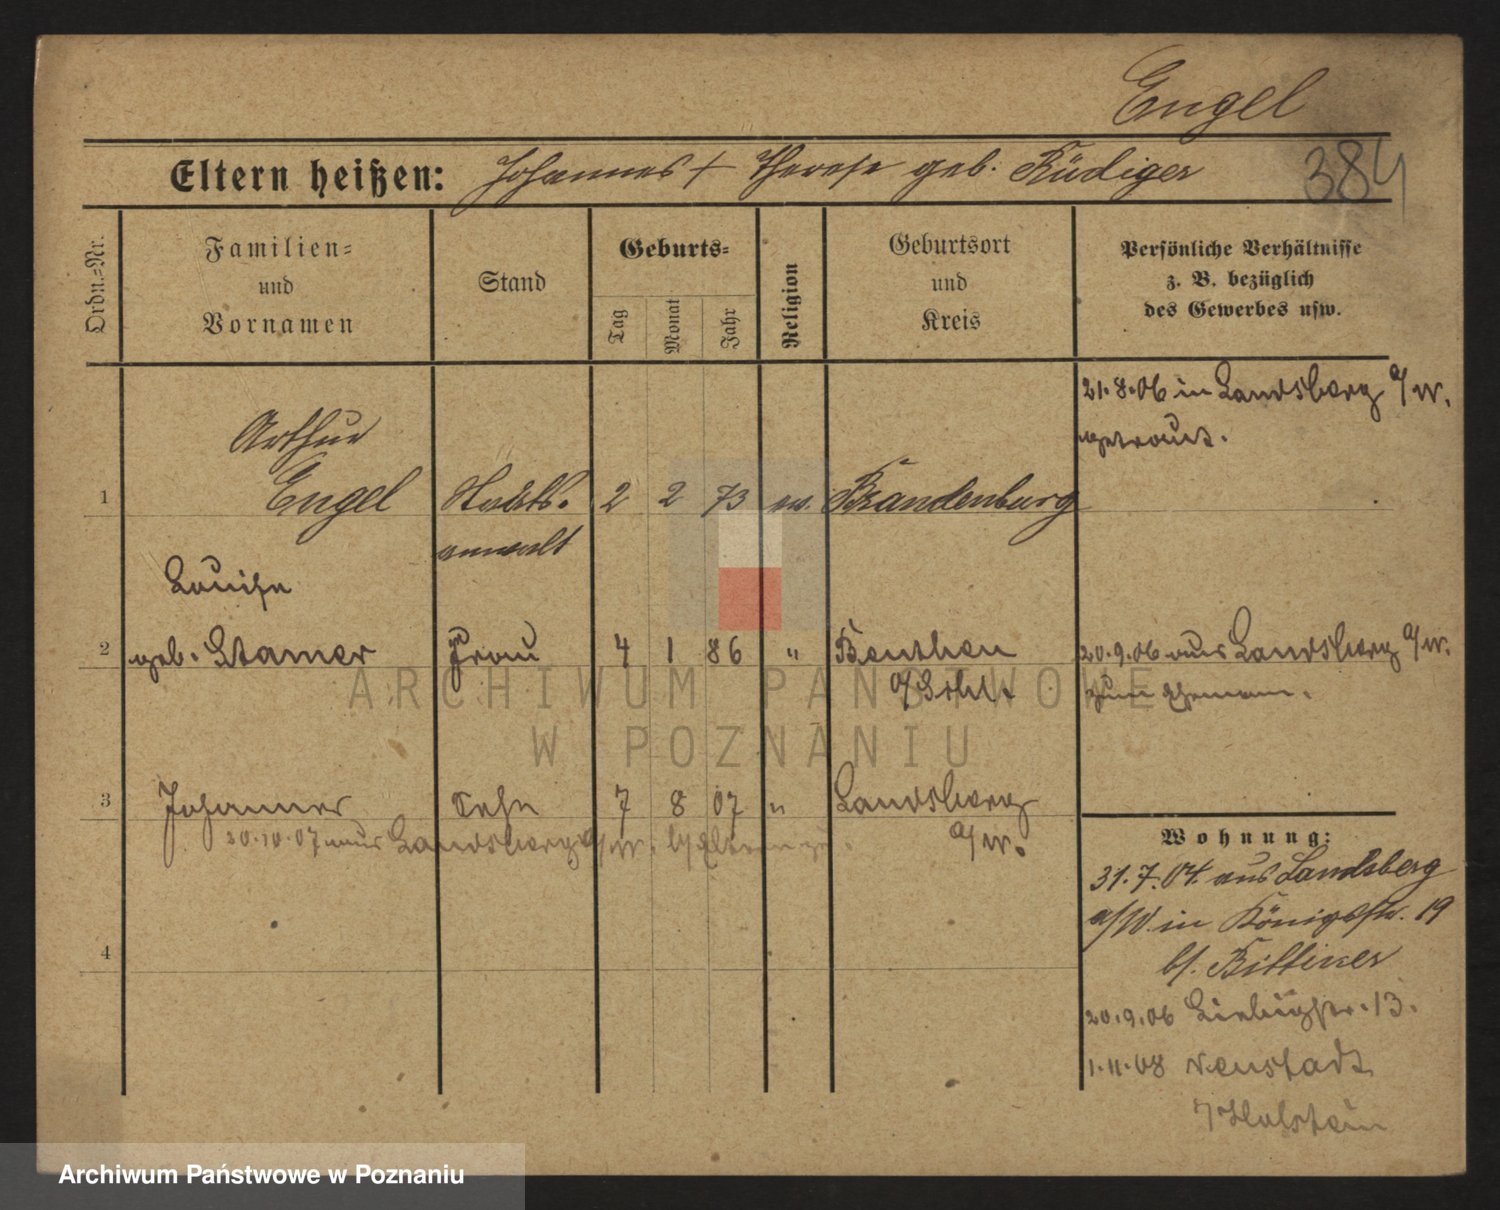 Engel
384
Eltern heißen: Johannes + Therese geb. Rüdiger
Ordn.=Nr.
Familien=
und
Vornamen
Stand
Geburts=
Tag
Monat
Jahr
Religion
Geburtsort
und
Kreis
Persönliche Verhältnisse
z. B. bezüglich
des Gewerbes usw.
21.8.06 in Landsberg a/W.
getraut.
Arthur
1 Engel Staats- 2 2 73 ev. Brandenburg
anwalt
Louise
2 geb. Stamer Frau 4 1 86 " Beuthen 20.9.06 aus Landsberg a/W.
zum Ehemann.
3 Johannes Sohn 7 8 07 " Landsberg
a/W.
20.10.07 aus Landsberg a/W.
4
Wohnung:
31.7.04. aus Landsberg
a/W. in Königsstr. 19
b/. Bittiner
20.9.06 Liebigstr. 13.
1.11.08 Neustadt
/Holstein
ARCHIWUM PAŃSTWOWE
W POZNANIU
Archiwum Państwowe w Poznaniu